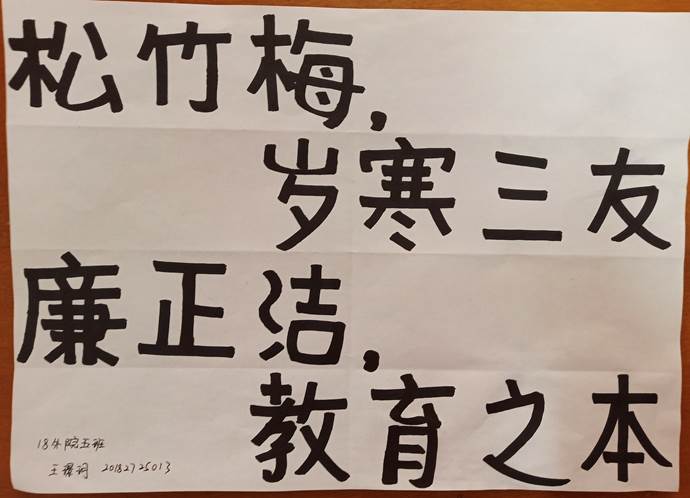 松竹梅,
岁寒三友
廉正洁,
教育之本
18外院五班
王 20182725013